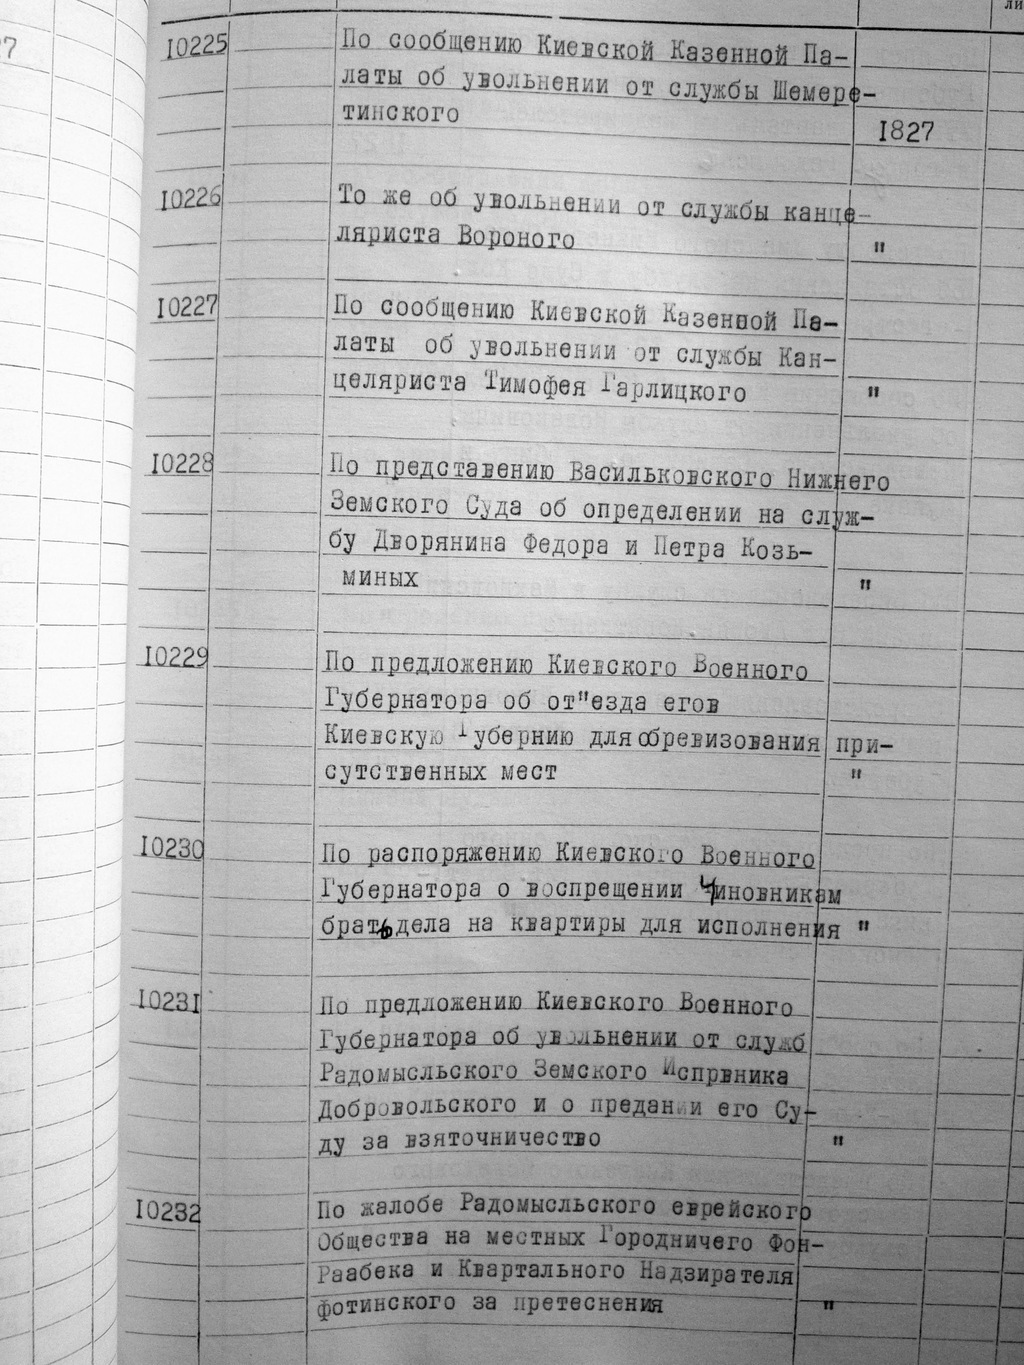 ли
27
10225 По сообщению Киевской Казенной Па-
латы об увольнении от службы Шемере-
тинского
1827
10226 То же об увольнении от службы канце-
ляриста Вороного "
10227 По сообщению Киевской Казенной Па-
латы об увольнении от службы Кан-
целяриста Тимофея Гарлицкого "
10228 По представению Васильковского Нижнего
Земского Суда об определении на служ-
бу Дворянина Федора и Петра Козь-
миных "
10229 По предложению Киевского Военного
Губернатора об от"езда егов
Киевскую Губернию для обревизования при-
сутственных мест "
10230 По распоряжению Киевского Военного
Губернатора о воспрещении Чиновникам
брать дела на квартиры для исполнения "
10231 По предложению Киевского Военного
Губернатора об увольнении от служб
Радомысльского Земского Испрвника
Добровольского и о предании его Су-
ду за взяточничество "
10232 По жалобе Радомысльского еврейского
Общества на местных Городничего Фон-
Раабека и Квартального Надзирателя
фотинского за претеснения "